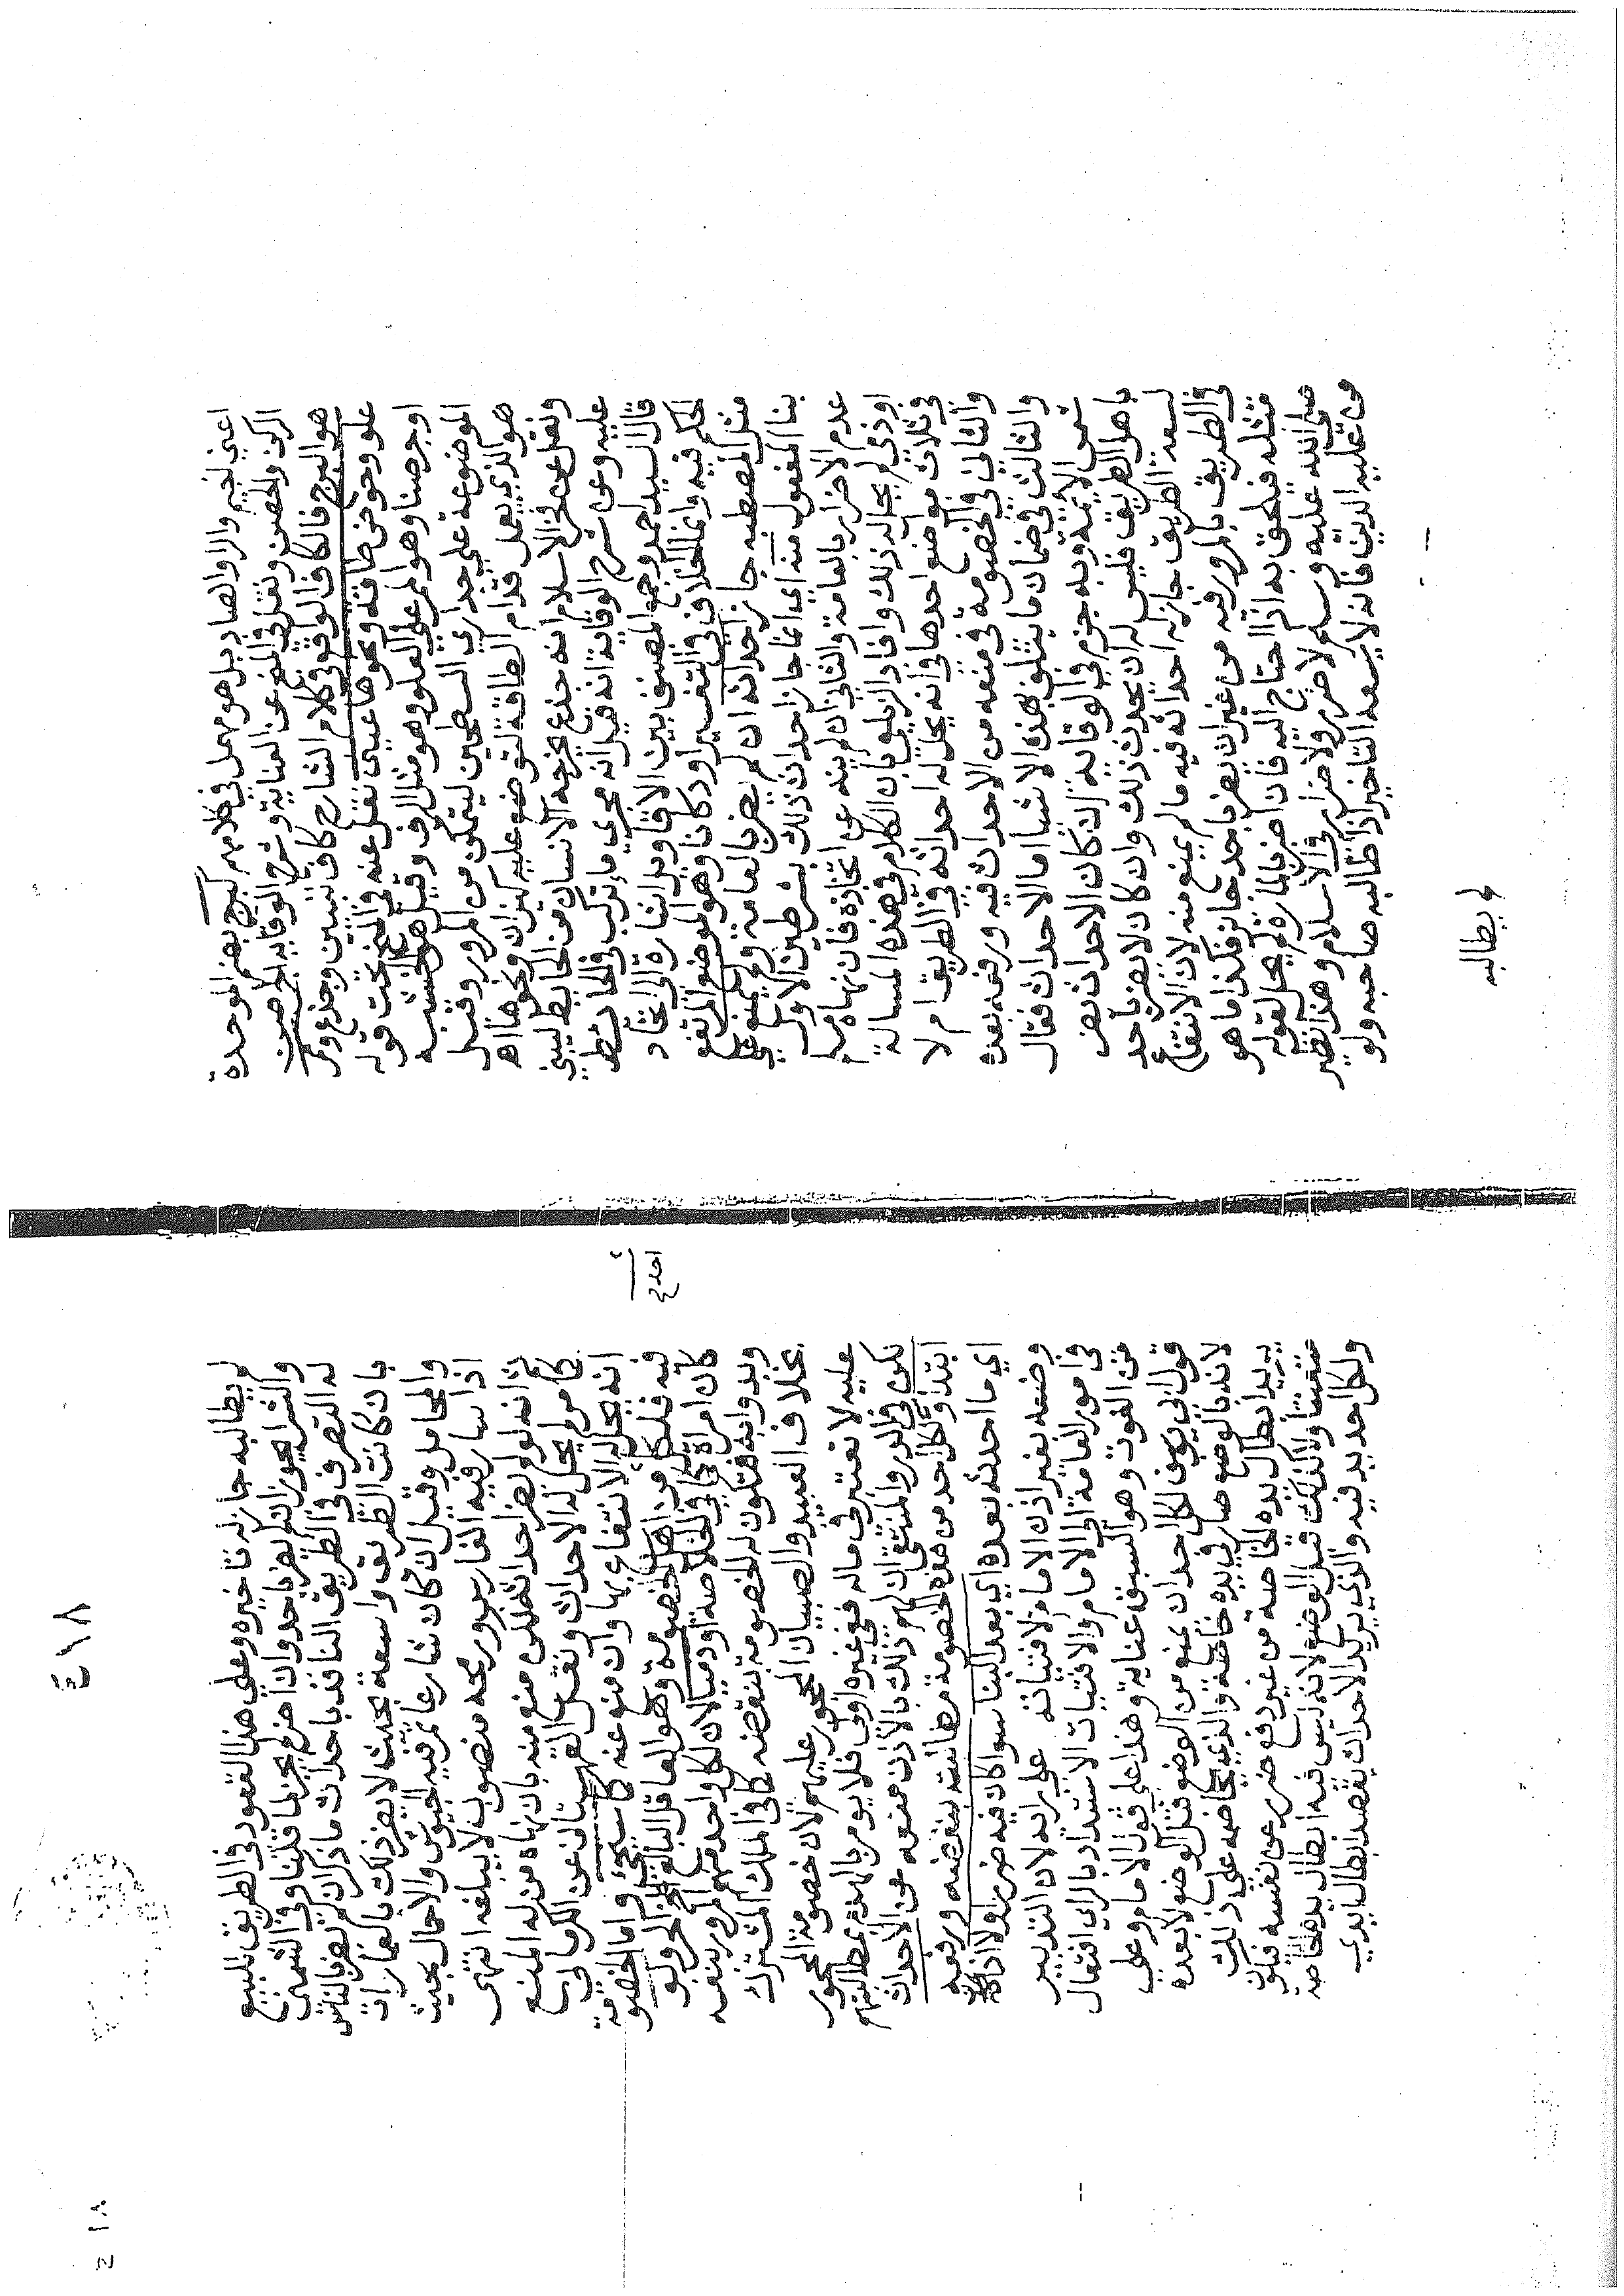 اعني بجيم والراوالصاد بل هو مهمل في كلامهم كبرج بضم الموحدة
الركن والحصن ونقل في المنح عن العناية وشرح الوقاية الجرصن
هو البرج قال كافي الوقو في كلام الشارح كاف تبيين وجذع وممر
علو وحوض طاقة ونحوها عيني نقل عنه في المنح تحت قوله
اوجرصنا وهو الممر على العلو وهو مثل الرف وقيل هو الخشبة
الموضوعة على جداري السطحين ليتمكن من المرور وقيل
هو الذي يعمل قدام الطاقة لتوضع عليه كيزان ونحوها اه
ونقل عن فخر الاسلام انه جذع يخرجه الانسان من الحايط ليبني
عليه وعن شرح الوقاية انه قيل انه مجري ما يركب في الحائط
قال السيد احمد وجمع المصنف بين الاقاويل اشارة الى اتحاد
الحكم فيه وانما الخلاف في التفسير اودكانا وهو الموضع المرتفع
مثل المصطبه جاز احداثه ان لم يضر بالعامة ولم يمنع على
بنا المفعول منه اي انما جاز احداث ذلك بشرطين الاول
عدم الاضرار بالعامة والثاني ان لم ينه عن اتخاذه فان نهاه مسلم
اوذمي لم يجز له ذلك وافاد الزيلعي بان الكلام في هذه المسالة
في ثلاث مواضع احدها في انه يحل له احداثه في الطريق ام لا
والثاني في الخصومة في منعه من الاحداث فيه ورفعه بعده
والثالث في ضمان ما يتلف بهذه الاشيا اما الاحداث فقال
شمس الائمة وبه جزم في الوقاية ان كان الاحداث يضر
باهل الطريق فليس له ان يحدث ذلك وان كان لا يضر باحد
لسعة الطريق جاز له احداثه فيه ما لم يمنع منه لان الانتفاع
في الطريق بالمرور فيه من غير ان يضر باحد جائز فكذا ما هو
مثله فيلحق به اذا احتاج اليه فان اضر بالمارة لم يحل لقوله
صلى الله عليه وسلم لا ضرر ولا ضرار في الاسلام وهذا نظير
من عليه الدين فانه لا يسعه التاخير اذا طالبه صاحبه ولو
لم يطالبه
٤١٨
لم يطالبه جاز له تاخيره وعلى هذا القعود في الطريق للبيع
والشرا يجوز ان لم يضر باحد وان اضر لم يجز لما قلنا وفي الشمني
له التصرف في الطريق النافذ باحداث ما ذكر ان لم يضر بالناس
بان كانت الطريق واسعة بحيث لا يضر ذلك بالمارات
والمحامل وقيل ان كان شارعا تمر فيه الجيوش والاحمال بحيث
اذا سار فيه الفارس ورمحه منصوب لا يبلغه انتهى
ثم انه لو لم يضر احداثه لكن منع منه بان نهاه من له المنع
كما مر لم يحل له الاحداث ونقل القهستاني عن الكرماني
انه يحل له الانتفاع بها وان منع عنه كما سيجئ واما الخصومة
فيه فلكل من اهل الخصومة وهو العاقل البالغ الحر ولو
كان امراة كما في الخلاصة اوذميا لان لكل واحد منهم المرور بنفسه
وبدوابه فتكون له الخصومة بنقضه كما في الملك المشترك
بخلاف العبيد والصبيان المحجور عليهم لان خصومة المحجور
عليه لا تعتبر في ماله ففي غيره اولى فلا يؤمن بالهدم بمطالبتهم
تكون في الدر المنتقى ان لهم ذلك بالاذن منعه من الاحداث
ابتدا ولكل احد من هذه الخصومة مطالبته بنقضه ورفعه
اي ما احدثه بعده اي بعد البنا سواء كان فيه ضرر اولا اذا
وضعه بغير اذن الامام لافتياته على رايه لان التدبير
في امور العامة الى الامام والافتيات الاستبداد بالراي افتعال
من الفوت وهو السبق عناية وهذا على قول الامام وعلى
قول ابي يوسف لكل احد ان يمنع من الوضع قبل الوضع لا بعده
لانه بالوضع صار في يده خاصة والذي يخاصمه على ذلك
يريد ابطال يده الخاصة من غير دفع ضرر عن نفسه فيكون
متعنتا ولا كذلك قبل الوضع لانه ليس فيه ابطال يده الخاصة
ولكل احد يد فيه والذي يريد الاحداث يقصد ابطال ايدي